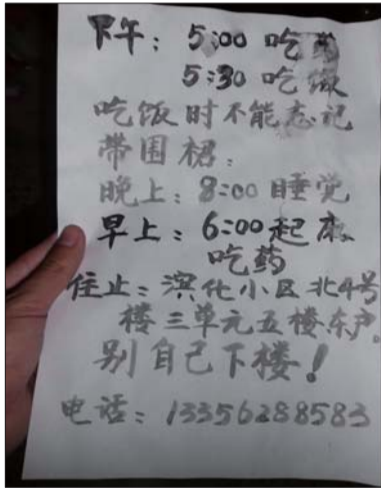 下午：5:00 吃药
5:30 吃饭
吃饭时不能忘记
带围裙：
晚上：8:00 睡觉
早上：6:00 起床
吃药
住止：滨化小区北4号
楼三单元五楼东户。
别自己下楼！
电话：13356288583